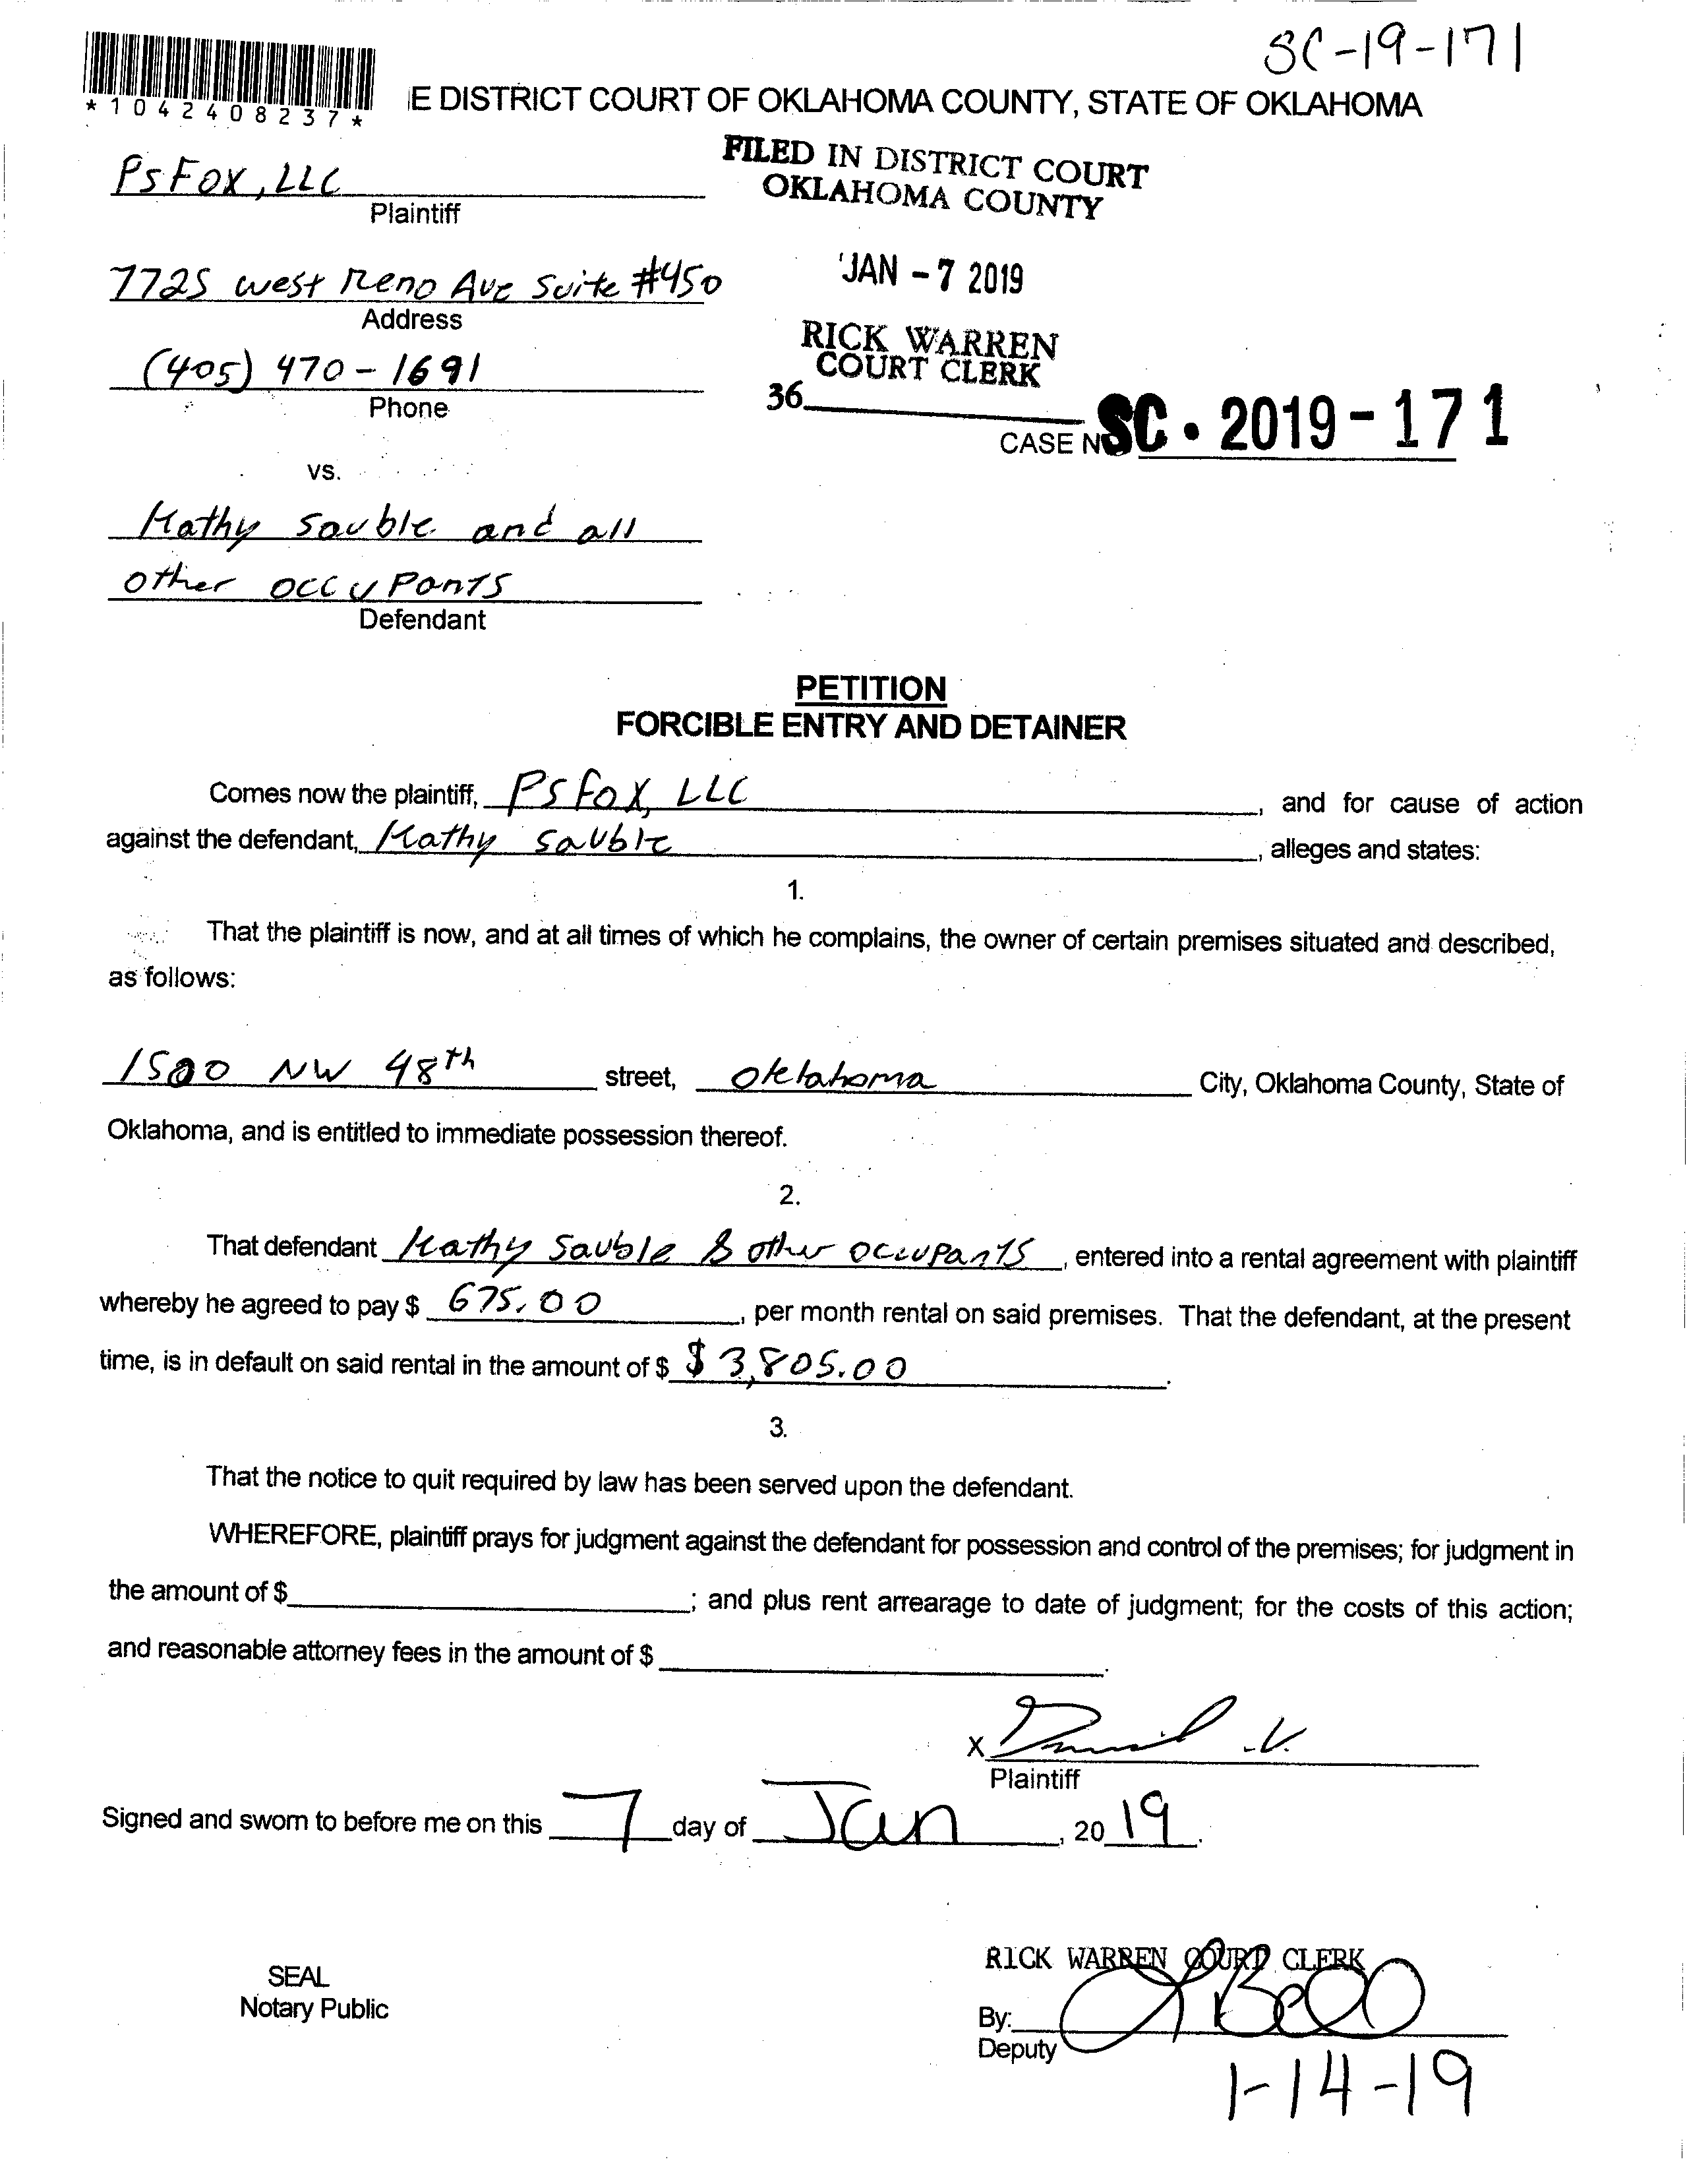 SC-19-171
*1042408237*
E DISTRICT COURT OF OKLAHOMA COUNTY, STATE OF OKLAHOMA
PSFOX, LLC
Plaintiff
FILED IN DISTRICT COURT
OKLAHOMA COUNTY
7725 West Reno Ave Suite #450
Address
JAN - 7 2019
(405) 470-1691
Phone
RICK WARREN
COURT CLERK
36
CASE NO SC • 2019 - 171
vs.
Kathy Sauble and all
other occupants
Defendant
PETITION
FORCIBLE ENTRY AND DETAINER
Comes now the plaintiff, PSFOX, LLC, and for cause of action
against the defendant, Kathy Sauble, alleges and states:
1.
That the plaintiff is now, and at all times of which he complains, the owner of certain premises situated and described,
as follows:
1500 NW 48th street, Oklahoma City, Oklahoma County, State of
Oklahoma, and is entitled to immediate possession thereof.
2.
That defendant Kathy Sauble & other occupants, entered into a rental agreement with plaintiff
whereby he agreed to pay $ 675.00, per month rental on said premises. That the defendant, at the present
time, is in default on said rental in the amount of $ $3,805.00.
3.
That the notice to quit required by law has been served upon the defendant.
WHEREFORE, plaintiff prays for judgment against the defendant for possession and control of the premises; for judgment in
the amount of $; and plus rent arrearage to date of judgment; for the costs of this action;
and reasonable attorney fees in the amount of $.
X
Plaintiff
Signed and sworn to before me on this 7 day of Jan, 20 19.
SEAL
Notary Public
RICK WARREN COURT CLERK
By:
Deputy
1-14-19